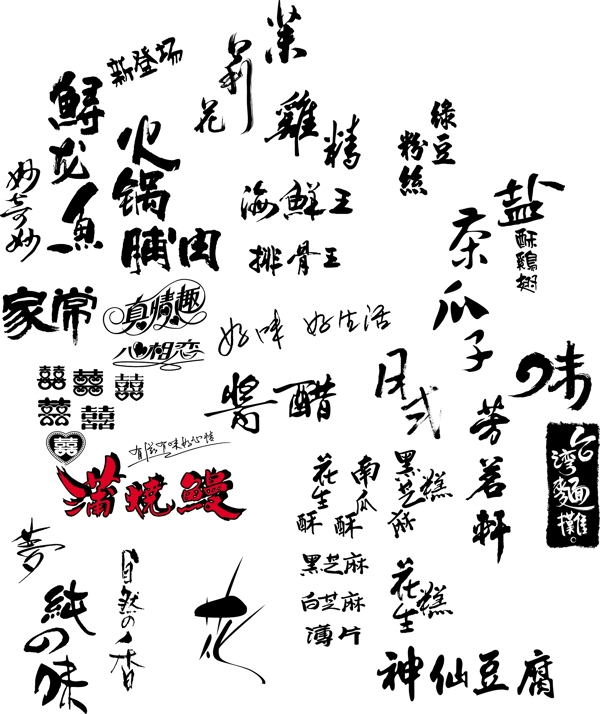 茉
莉
花
新登场
鲟龙鱼
火锅
脯肉
妙奇妙
雞精
綠豆
粉絲
海鮮王
排骨王
盐
酥鷄翅
茶瓜子
家常
真情趣
心相恋
好味 好生活
囍囍囍
囍囍
囍
醬醋
日式
の味
芳茗軒
台灣麵攤。
蒲燒鰻
花生酥
南瓜酥
黑芝麻糕
黑芝麻
白芝麻
薄片
花生糕
夢
純の味
自然の香
花
神仙豆腐